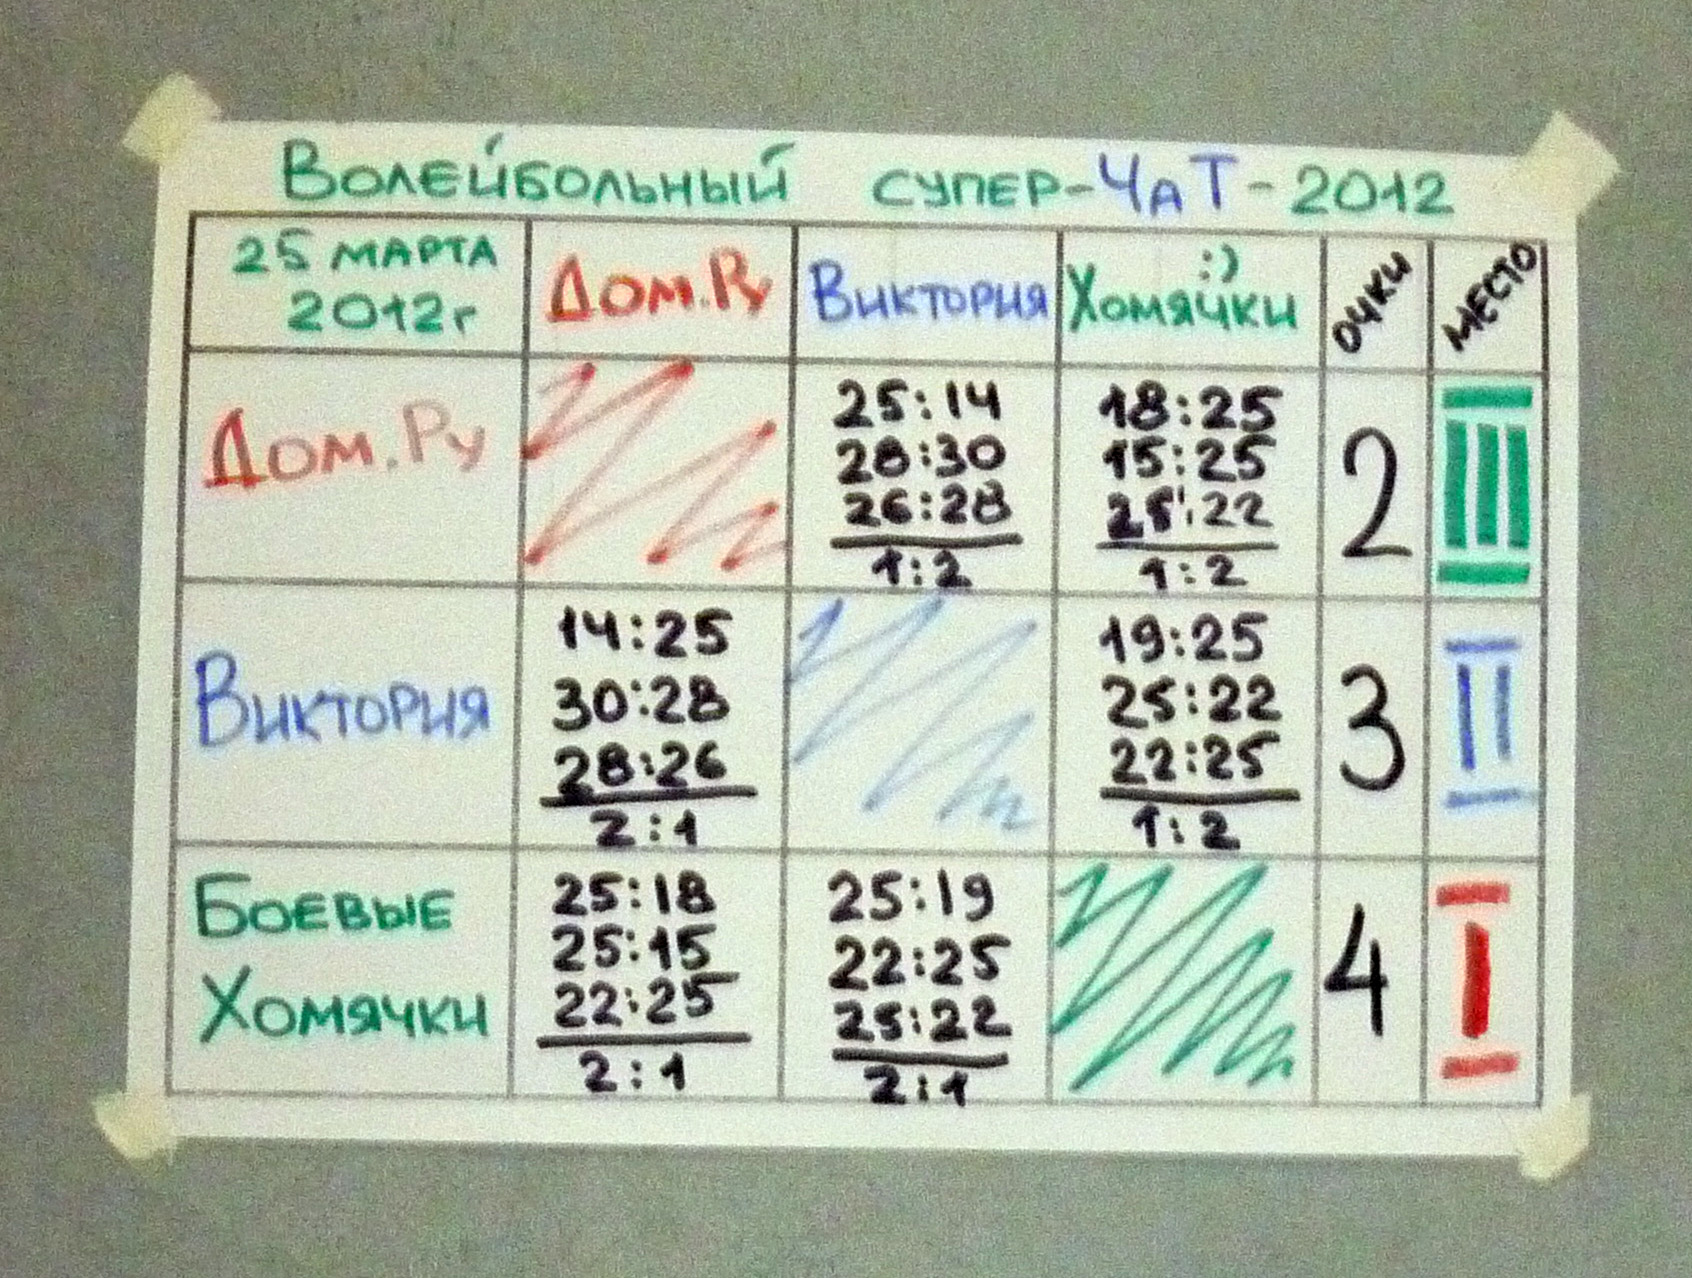 Волейбольный супер-ЧАТ-2012
25 марта 2012г Дом.Ру Виктория Хомячки :) очки место
Дом.Ру 25:14 18:25 2 III
28:30 15:25
26:28 25:22
1:2 1:2
Виктория 14:25 19:25 3 II
30:28 25:22
28:26 22:25
2:1 1:2
Боевые Хомячки 25:18 25:19 4 I
25:15 22:25
22:25 25:22
2:1 2:1